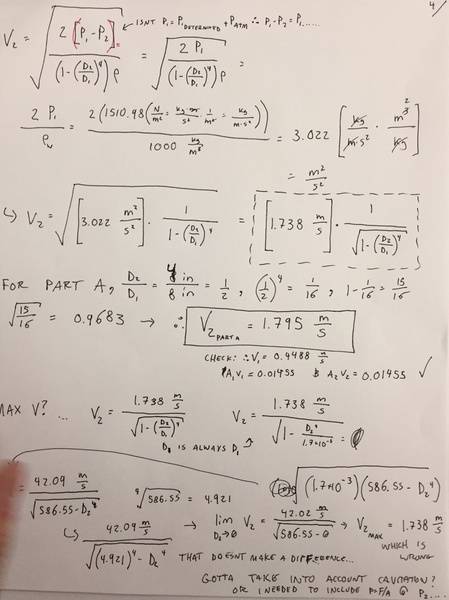 4/
V₂ = √(2[P₁ - P₂] / ((1-(D₂/D₁)⁴)ρ)) ← ISNT P₁ = P₁ DETERMINED + PATM ∴ P₁-P₂ = P₁......
= √(2 P₁ / ((1-(D₂/D₁)⁴)ρ)) =
2 P₁ / ρw = 2(1510.98(N/m² = kg·m/s² · 1/m² = kg/m·s²)) / 1000 kg/m³ = 3.022 [kg/m·s² · m³/kg]
= m²/s²
↳ V₂ = √([3.022 m²/s²] · 1/(1-(D₂/D₁)⁴)) = [1.738 m/s] · 1/√(1-(D₂/D₁)⁴)
FOR PART A, D₂/D₁ = 4 in/8 in = 1/2, (1/2)⁴ = 1/16, 1-1/16 = 15/16
√(15/16) = 0.9683 → ∴ V₂ PART A = 1.795 m/s
CHECK: ∴ V₁ = 0.4488 m/s
A₁V₁ = 0.01455 & A₂V₂ = 0.01455 ✓
MAX V? ... V₂ = 1.738 m/s / √(1-(D₂/D₁)⁴) V₂ = 1.738 m/s / √(1 - D₂⁴/1.7×10⁻³) =
D₁ IS ALWAYS D₁
√((1.7×10⁻³)(586.55-D₂⁴))
= 42.09 m/s / √(586.55-D₂⁴) ⁴√586.55 = 4.921
↳ 42.09 m/s / √((4.921)⁴-D₂⁴) → lim D₂→0 V₂ = 42.02 m/s / √(586.55-0) → V₂ MAX = 1.738 m/s
WHICH IS WRONG
THAT DOESNT MAKE A DIFFERENCE...
GOTTA TAKE INTO ACCOUNT CAVITATION?
OR I NEEDED TO INCLUDE P=F/A @ P₂....